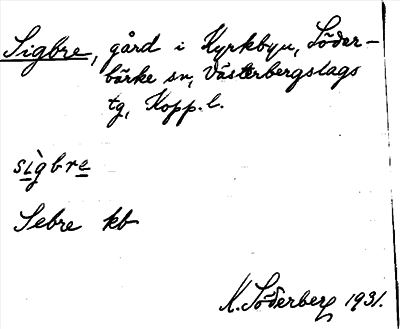 Sigbre, gård i Kyrkbyn, Söder-
bärke sn, Västerbergslags
tg, Kopp.l.
sìgbre
Sebre kb
K. Söderberg 1931.